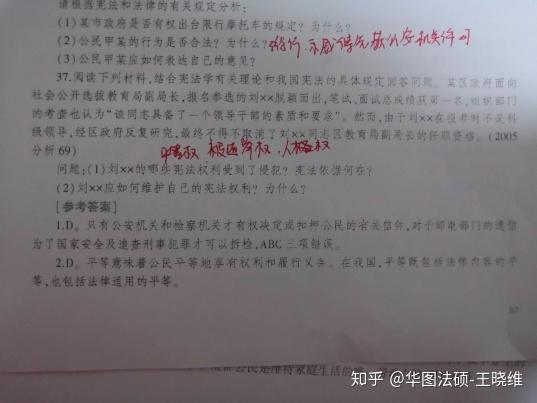 请根据宪法和法律的有关规定分析:
(1)某市政府是否有权出台限行摩托车的规定?为什么?
(2)公民甲某的行为是否合法?为什么?
(3)公民甲某应如何表达自己的意见?
37.阅读下列材料,结合宪法学有关理论和我国宪法的具体规定回答问题。某区政府面向
社会公开选拔教育局副局长,报名参选的刘××脱颖而出,笔试、面试总成绩获第一名,组织部门
的考查也认为“该同志具备了一个领导干部的素质和要求”。然而,由于刘××在报考时不是科
级领导,经区政府反复研究,最终不得不取消了刘××同志区教育局副局长的任职资格。(2005
分析69)
平等权、被选举权、人格权
问题:(1)刘××的哪些宪法权利受到了侵犯?宪法依据何在?
(2)刘××应如何维护自己的宪法权利?为什么?
[参考答案]
1.D。只有公安机关和检察机关才有权决定或扣押公民的有关信件,对于邮电部门的通信
为了国家安全及追查刑事犯罪才可以拆检,ABC三项错误。
2.D。平等意味着公民平等地享有权利和履行义务。在我国,平等既包括法律内容的平
等,也包括法律适用的平等。
97
公民是维持家庭生活的
知乎 @华图法硕-王晓维